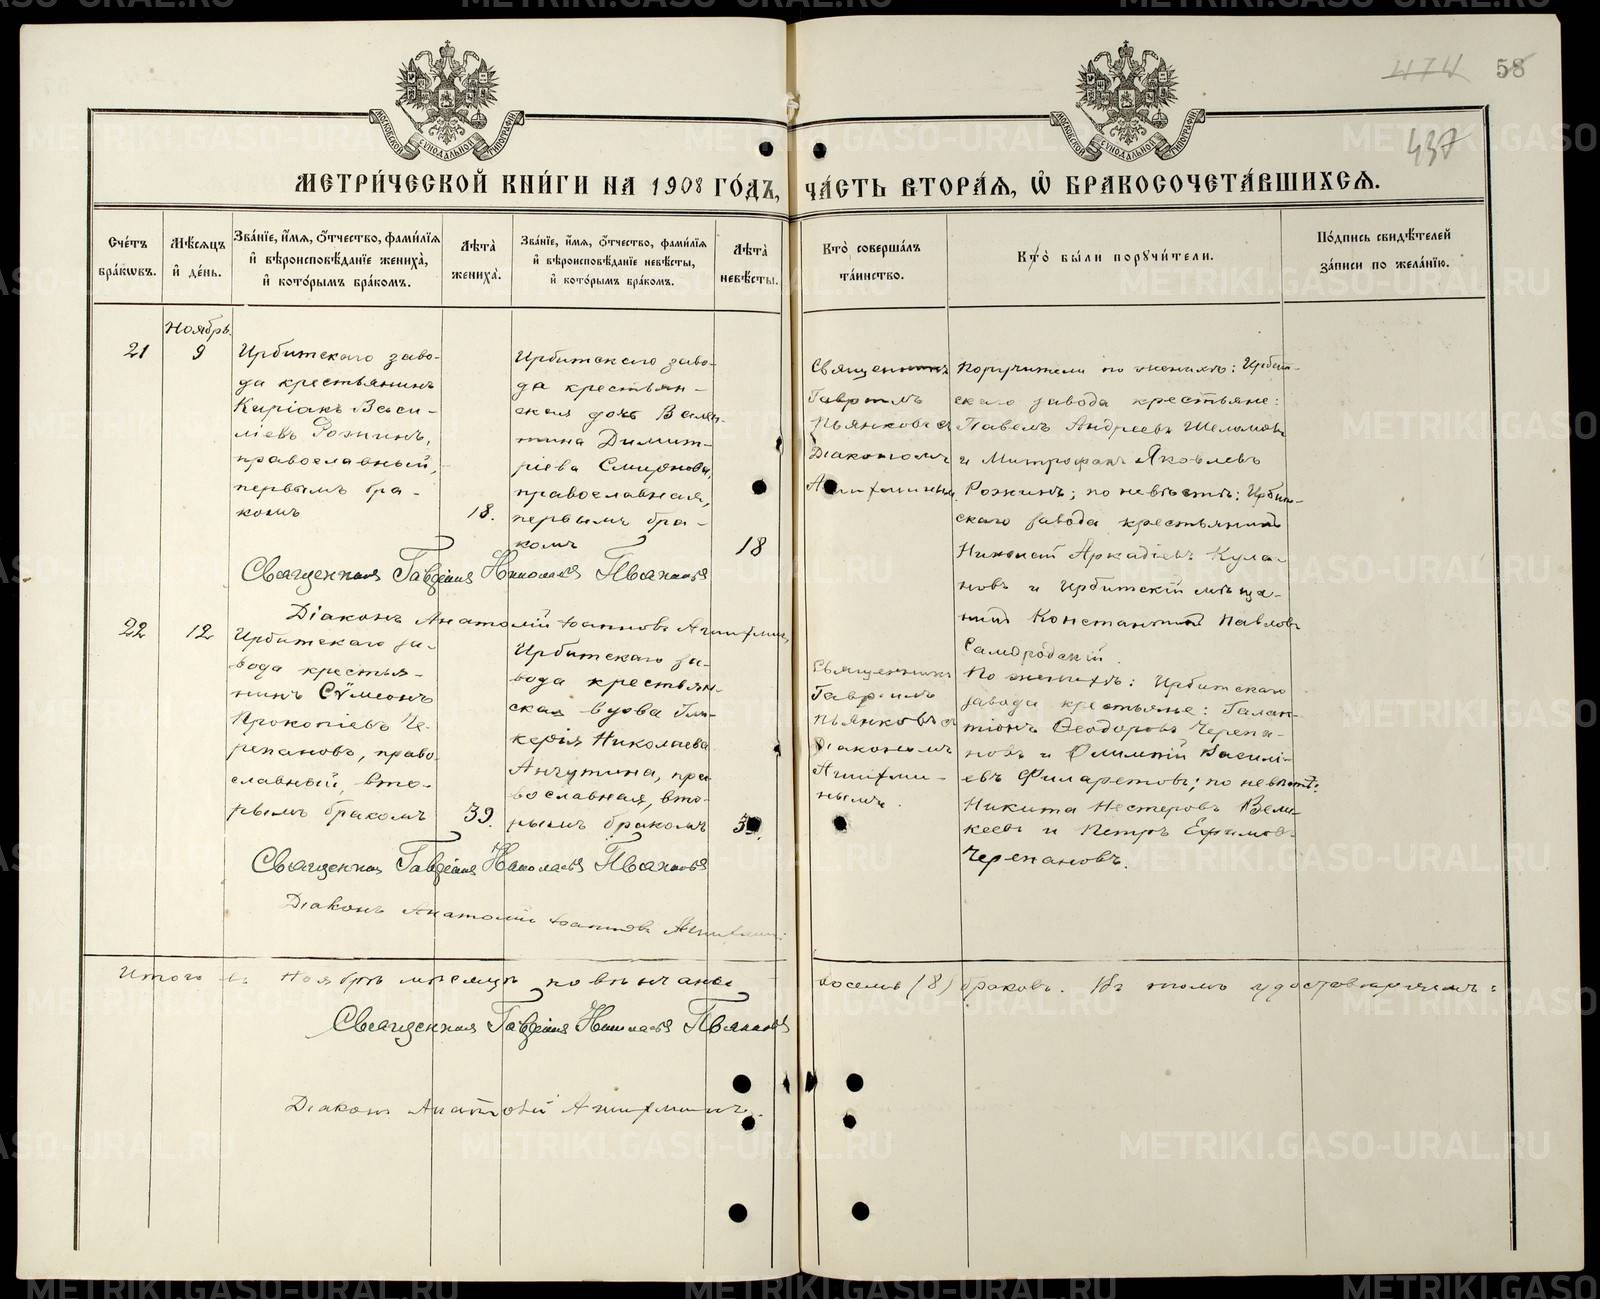 474 58
437
МОСКОВСКОЙ СУНОДАЛЬНОЙ ТИПОГРАФІИ
МОСКОВСКОЙ СУНОДАЛЬНОЙ ТИПОГРАФІИ
МЕТРИ́ЧЕСКОЙ КНИ́ГИ НА 1908 ГО́ДЪ, ЧА́СТЬ ВТОРА́Я, Ѡ БРАКОСОЧЕТА́ВШИХСЯ.
Сче́тъ бра́кѡвъ.
Мѣ́сяцъ и де́нь.
Зва́нїе, и́мя, ѻ́тчество, фами́лїя и вѣроисповѣ́данїе жениха̀, и кото́рымъ бра́комъ.
Лѣ́та жениха̀.
Зва́нїе, и́мя, ѻ́тчество, фами́лїя и вѣроисповѣ́данїе невѣ́сты, и кото́рымъ бра́комъ.
Лѣ́та невѣ́сты.
Кто̀ соверша́лъ та́инство.
Кто̀ бы́ли порꙋчи́тели.
По́дпись свидѣ́телей за́писи по жела́нїю.
21
Ноябрь.
9
Ирбитскаго заво-
да крестьянинъ
Киріакъ Васи-
ліевъ Рожинъ,
православный,
первымъ бра-
комъ
18.
Ирбитскаго заво-
да крестьян-
ская дочь Вален-
тина Димит-
ріева Смирнова,
православная,
первымъ бра-
комъ
18
Священникъ
Гавріилъ
Пьянковъ съ
Діакономъ
Агафминым
Поручители по женихѣ: Ирбит-
скаго завода крестьяне:
Павелъ Андреевъ Шеломовъ
и Митрофанъ Яковлевъ
Рожинъ; по невѣстѣ: Ирбит-
скаго завода крестьянинъ
Николай Аркадіевъ Кула-
новъ и Ирбитскій мѣща-
нинъ Константинъ Павловъ
Священникъ Гавріилъ Николаевъ Пьянковъ
Діаконъ Анатолій Іоанновъ
22
12
Ирбитскаго за-
вода крестья-
нинъ Сѵмеонъ
Прокопіевъ Че-
репановъ, право-
славный, вто-
рымъ бракомъ
39.
Ирбитскаго за-
вода крестьян-
ская вдова Гли-
керія Николаева
Анчутина, пра-
вославная, вто-
рымъ бракомъ
Священникъ
Гавріилъ
Пьянковъ съ
Діакономъ
По женихѣ: Ирбитскаго
завода крестьяне: Галак-
тіонъ Ѳеодоровъ Черепа-
новъ и Олимпій Василі-
евъ Филаретовъ; по невѣстѣ:
Никита Нестеровъ Вели-
кеевъ и Петръ Ефимовъ
Черепановъ.
Священникъ Гавріилъ Николаевъ Пьянковъ
Діаконъ Анатолій Іоанновъ
Итого въ Ноябрѣ мѣсяцѣ повѣнчано восемь (8) браковъ. Въ томъ удостовѣряемъ:
Священникъ Гавріилъ Николаевъ Пьянковъ
Діаконъ Анатолій
METRIKI.GASO-URAL.RU